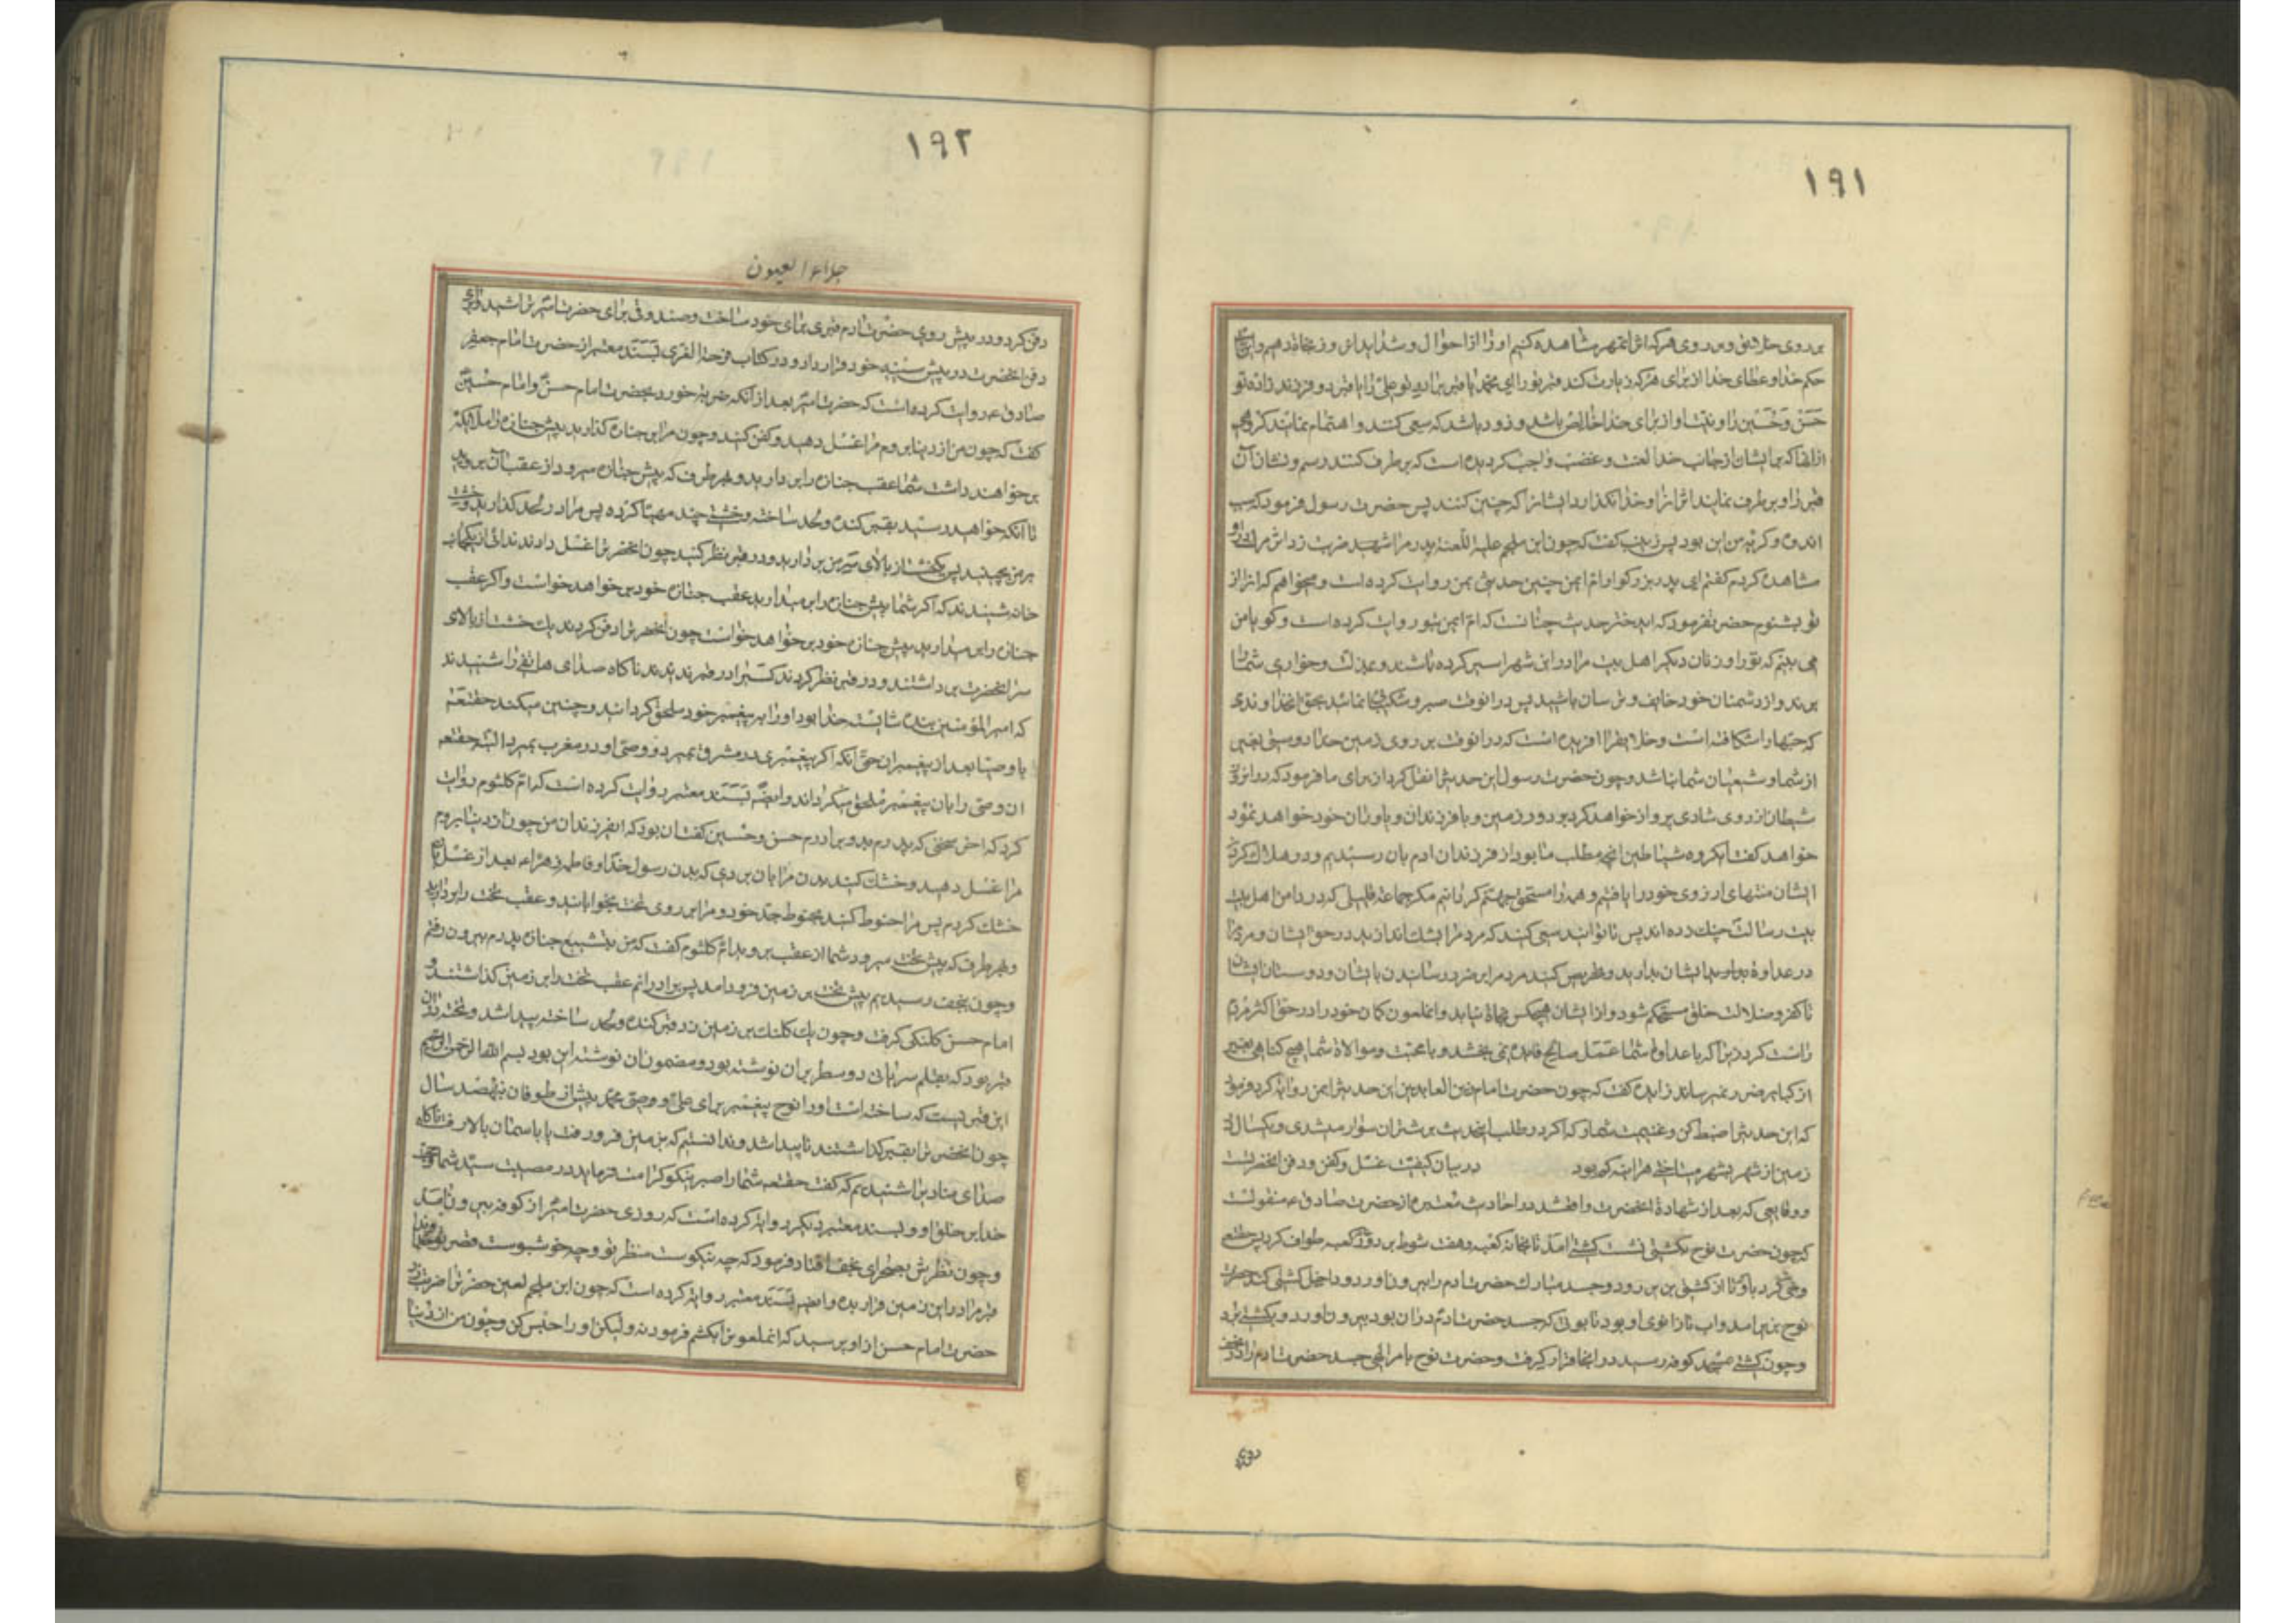 ۱۹۱
بر روی خلایق و بر روی هر که اثر آن مهر مشاهده کنیم او را از احوال و شداید آن روز نجاة دهیم و این است
حکم خدا و عطای خدا از برای هر که زیارت کند قبر تو را ای محمد یا قبر برادر تو علی را یا قبر دو فرزند زاده تو
حسن و حسین را و نیت او از برای خدا خالص باشد و زود باشد که سعی کنند و اهتمام نمایند گروهی
از آنها که بر ایشان از جانب خدا لعنت و غضب واجب گردیده است که برطرف کنند رسم و نشان آن
قبر را و برطرف نمایند اثر آن را و خدا نگذارد ایشان را که چنین کنند پس حضرت رسول فرمود که سبب
اندوه و گریه من این بود پس زینب گفت که چون ابن ملجم علیه اللعنه پدر مرا شهید ضربت زد اثر مرگ در او
مشاهده کردم گفتم ای پدر بزرگوار ام ایمن چنین حدیثی بمن روایت کرده است و میخواهم که آنرا از
تو بشنوم حضرت فرمود که ای دختر حدیث چنانست که ام ایمن بتو روایت کرده است و گویا من
می بینم که تو را و زنان دیگر اهل بیت مرا در این شهر اسیر کرده باشند و بمذلت و خواری شما را
برند و از دشمنان خود خایف و ترسان باشید پس در آنوقت صبر و شکیبائی نمائید بحق آن خداوندی
که حبها را شکافته است و خلایق را آفریده است که در آنوقت بر روی زمین خدا دوستی بغیر
از شما و شیعیان شما نباشد و چون حضرت رسول این حدیث را نقل کرد از برای ما فرمود که در آنروز
شیطان از روی شادی پرواز خواهد کرد بر دور زمین و با فرزندان و یاوران خود خواهد نمود
خواهد گفت ای گروه شیاطین آنچه مطلب ما بود از فرزندان آدم بآن رسیدیم و در هلاک کردن
ایشان منتهای آرزوی خود را یافتیم و همه را مستحق جهنم گردانیم مگر جماعة قلیلی که در دامن اهل بیت
بیت رسالت چنک زده اند پس تا توانید سعی کنید که مردم را بشک اندازید در حق ایشان و مردم را
در عداوة ایشان بدارید و تحریص کنید مردم را بر ضرر رسانیدن بایشان و دوستان ایشان
تا کفر و ضلالت خلق مستحکم شود و از ایشان هیچکس نجاة نیابد و آن ملعون گمان خود را در حق اکثر مردم
راست کرد زیرا که با عداوة شما عمل صالح فایده نمی بخشد و با محبت و موالاة شما هیچ گناهی بغیر
از کبایر ضرر نمیرساند زایده گفت که چون حضرت امام زین العابدین این حدیث را بمن روایة کرد فرمود
که این حدیث را ضبط کن و غنیمت شمار که اگر در طلب این حدیث بر شتران سوار میشدی و یکسال در
زمین از شهر بشهر میتاختی هر اینه کم بود در بیان کیفیت غسل و کفن و دفن آنحضرتست
و وقایعی که بعد از شهادة آنحضرت واقع شد در احادیث معتبره از حضرت صادق ع منقولست
که چون حضرت نوح بکشتی نشست کشتی آمد تا بخانه کعبه و هفت شوط بر دور کعبه طواف کرد پس حقتعالی
وحی کرد باو تا از کشتی بزیر رود و جسد مبارک حضرت آدم را بیرون آورد و داخل کشتی کند حضرت
نوح بزیر آمد و آب تا زانوی او بود تابوتی که جسد حضرت آدم در آن بود بیرون آورد و بکشتی برد
و چون کشتی بمسجد کوفه رسید در آنجا قرار گرفت و حضرت نوح بامر الهی جسد حضرت آدم را در نجف
۱۹۲
جلاء العیون
دفن کرد و در پیش روی حضرت آدم قبری برای خود ساخت و صندوقی برای حضرت امیر تراشید و برای
دفن آنحضرت در پیش سینه خود قرار داد و در کتاب فرحة الغری بسند معتبر از حضرت امام جعفر
صادق ع روایت کرده است که حضرت امیر بعد از آنکه ضربة خورد بحضرت امام حسن و امام حسین
گفت که چون من از دنیا بروم مرا غسل دهید و کفن کنید و چون مرا بر جنازه گذارید پیش جنازه را ملائکه
بر خواهند داشت شما عقب جنازه را بردارید و بهر طرف که پیش جنازه میرود از عقب آن بروید
تا آنکه خواهید رسید بقبر کنده و لحد ساخته و خشتی چند مهیا کرده پس مرا در لحد گذارید و خشت
بر من بچینید پس یکخشت از بالای سر من بردارید و در قبر نظر کنید چون آنحضرت را غسل دادند ندائی از یکجانب
خانه شنیدند که اگر شما پیش جنازه را بر میدارید عقب جنازه خود بر خواهد خواست و اگر عقب
جنازه را بر میدارید پیش جنازه خود بر خواهد خواست چون آنحضرت را دفن کردند یک خشت از بالای
سر آنحضرت برداشتند و در قبر نظر کردند کسیرا در قبر ندیدند ناگاه صدای هاتفی را شنیدند
که امیر المؤمنین بنده شایسته خدا بود او را به پیغمبر خود ملحق گردانید و چنین میکند حقتعالی
با وصیا بعد از پیغمبران حتی آنکه اگر پیغمبری در مشرق بمیرد و وصی او در مغرب بمیرد البته حقتعالی
آن وصی را بآن پیغمبر ملحق میگرداند و ایضا بسند معتبر روایت کرده است که ام کلثوم روایت
کرد که آخر سخنی که پدرم بدو برادرم حسن و حسین گفت آن بود که ای فرزندان من چون از دنیا بروم
مرا غسل دهید و خشک کنید بدن مرا بآن بردی که بدن رسول خدا و فاطمه زهراء بعد از غسل بآن
خشک کردم پس مرا حنوط کنید بحنوط جد خود و مرا بر روی تخت بخوابانید و عقب تخت را بردارید
و بهر طرف که پیش تخت میرود شما از عقب بروید ام کلثوم گفت که من بتشییع جنازه پدرم بیرون رفتم
و چون بنجف رسیدیم پیش تخت بر زمین فرود آمد پس برادرانم عقب تخت را بر زمین گذاشتند و
امام حسن کلنکی گرفت و چون یک کلنک بر زمین زد قبر کنده و لحد ساخته پیدا شد و تخته در آن
قبر بود که بقلم سریانی دو سطر بر آن نوشته بود و مضمون آن نوشته این بود بسم الله الرحمن الرحیم
این قبریست که ساخته است او را نوح پیغمبر برای علی وصی محمد پیش از طوفان بهفصد سال
چون آنحضرت را بقبر گذاشتند ناپیدا شد و ندانستم که بزمین فرو رفت یا باسمان بالا رفت ناگاه
صدای منادیرا شنیدیم که گفت حقتعالی شما را صبر نیکو کرامت فرماید در مصیبت سید شما و حجت
خدا بر خلق او و بسند معتبر دیگر روایة کرده است که روزی حضرت امیر از کوفه بیرون آمد
و چون نظرش بصحرای نجف افتاد فرمود که چه نیکوست منظر تو و چه خوشبوست قعر تو خداوندا
قبر مرا در این زمین قرار بده و ایضا بسند معتبر روایة کرده است که چون ابن ملجم لعین حضرت را ضربت زد
حضرت امام حسن از او پرسید که آن ملعون را بکشم فرمود نه ولیکن او را حبس کن و چون من از دنیا